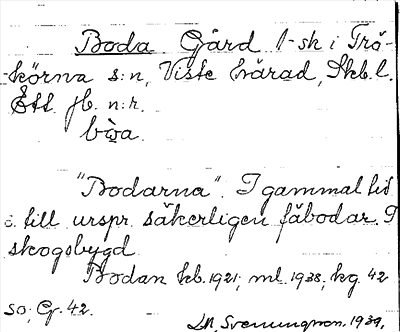 Boda. Gård 1-sk i Trö-
körna s:n, Viste härad, Skb. l.
Ett jb. n:r.
bòa.
"Bodarna". I gammal tid
o. till urspr. säkerligen fäbodar. I
skogsbygd
Bodan kb. 1921, ml. 1938, kg. 42
so, Gr. 42.
Svenungson. 1939.